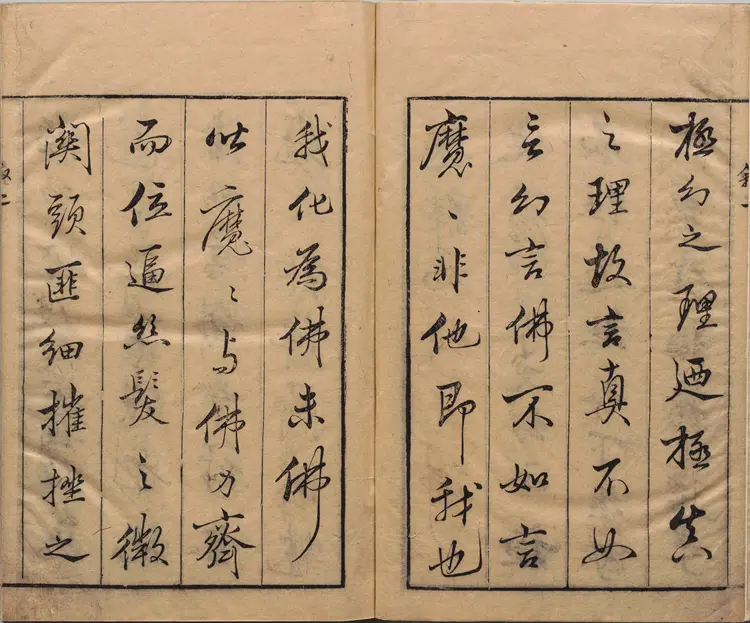 極幻之理廼極真
之理故言真不如
言幻言佛不如言
魔〻非他即我也
我化為佛未佛
皆魔〻与佛力齊
而位逼絲髮之微
関頭匪細摧挫之